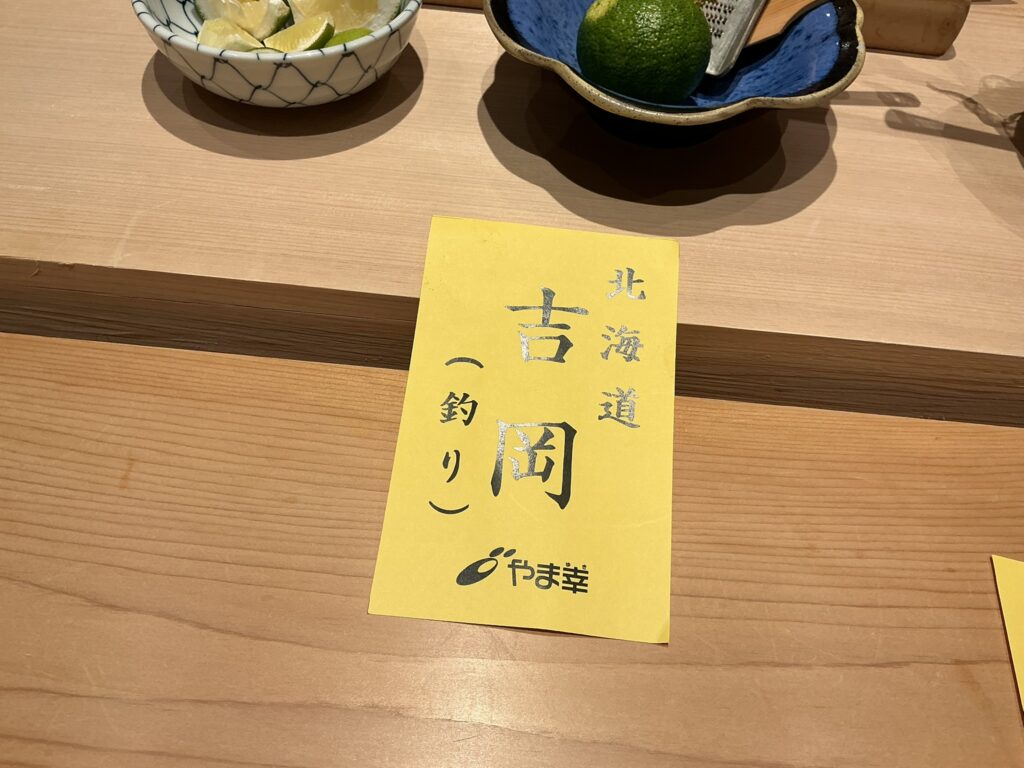 北海道
吉岡
（釣り）
やま幸